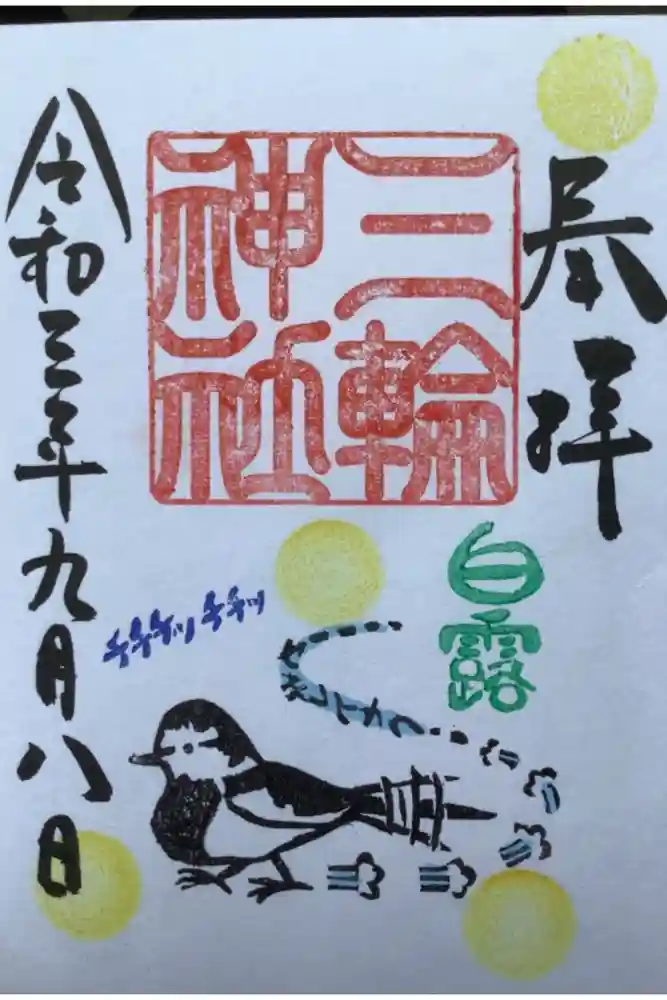 奉拝
三輪
神社
白露
チチチッ チチッ
令和三年九月八日